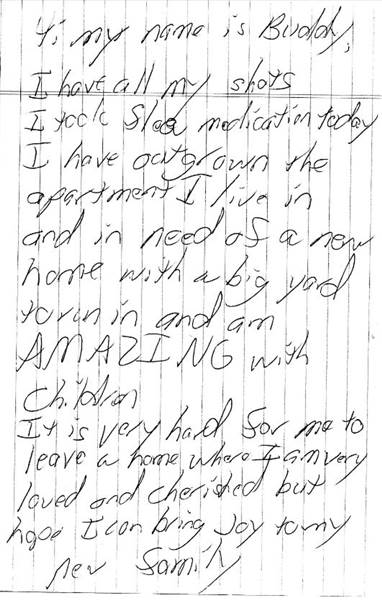 Hi my name is Buddy,
I have all my shots
I took flea medication today
I have outgrown the
apartment I live in
and in need of a new
home with a big yard
to run in and am
AMAZING with
Children
It is very hard for me to
leave a home where I am very
loved and cherished but
hope I can bring Joy to my
new family